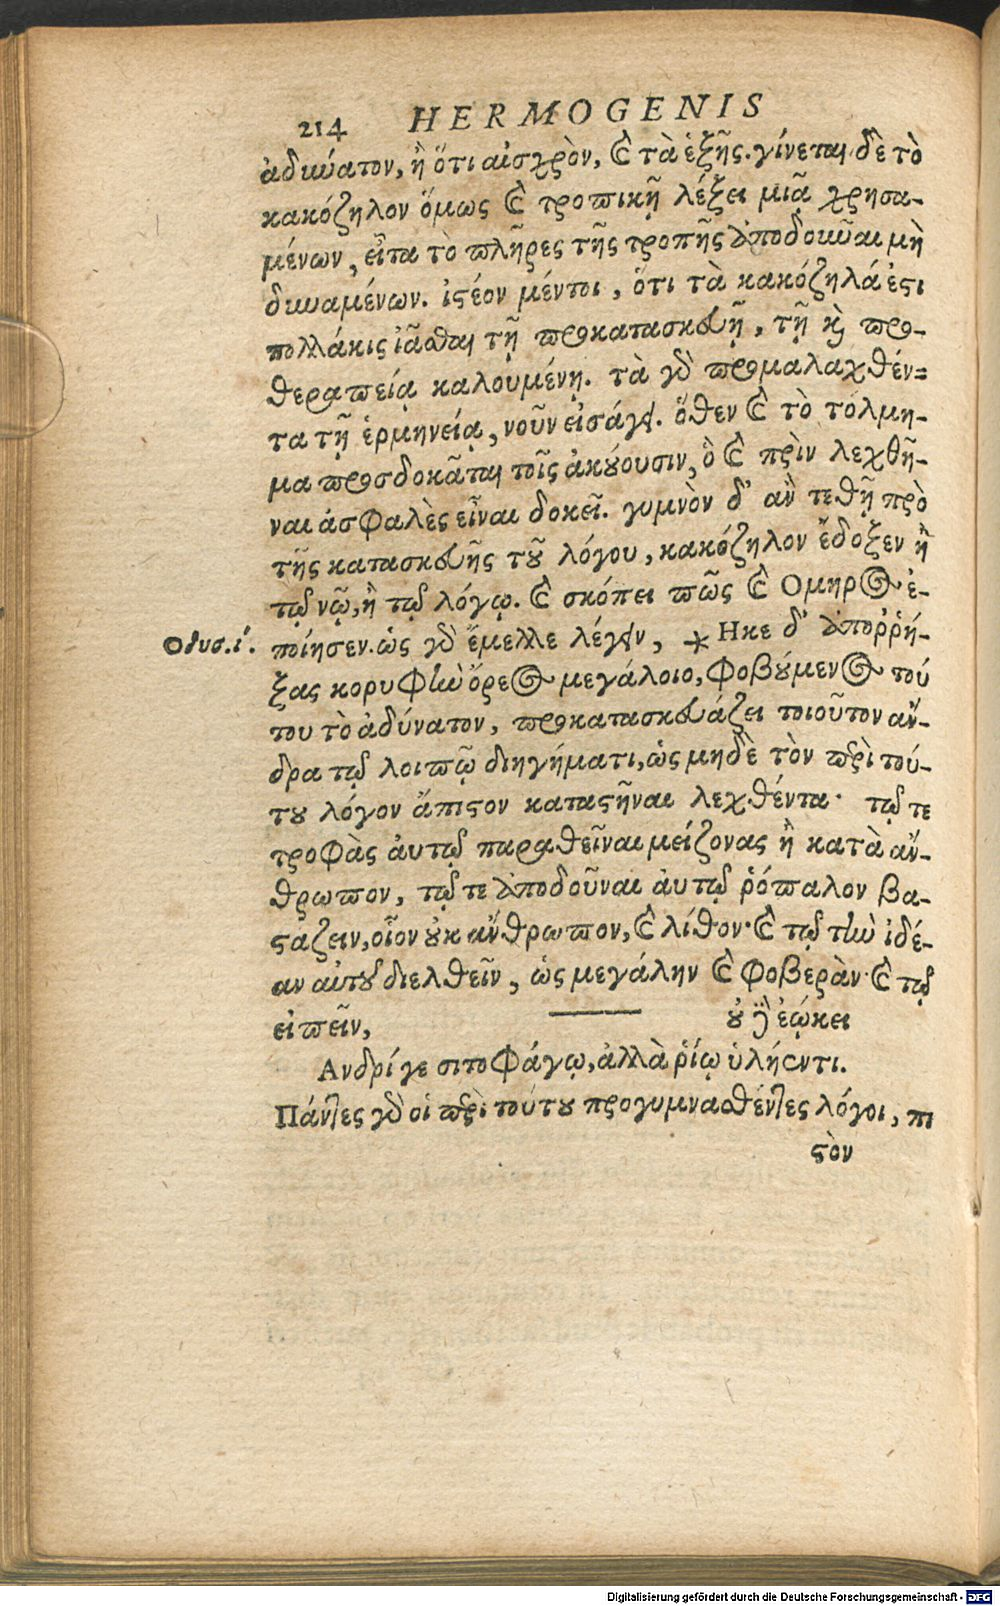 214 HERMOGENIS
ἀδύνατον, ἢ ὅτι αἰσχρὸν, καὶ τὰ ἑξῆς. γίνεται δὲ τὸ
κακόζηλον ὅμως καὶ τροπικῇ λέξει μιᾷ χρησα-
μένων, εἶτα τὸ πλῆρες τῆς τροπῆς ἀποδοῦναι μὴ
δυναμένων. ἰστέον μέντοι, ὅτι τὰ κακόζηλά ἐστι
πολλάκις ἰᾶσθαι τῇ προκατασκευῇ, τῇ καὶ προ-
θεραπείᾳ καλουμένῃ. τὰ γὰρ προμαλαχθέν-
τα τῇ ἑρμηνείᾳ, νοῦν εἰσάγει. ὅθεν καὶ τὸ τόλμη-
μα προσδοκᾶται τοῖς ἀκούουσιν, ὃ καὶ πρὶν λεχθῆ-
ναι ἀσφαλὲς εἶναι δοκεῖ. γυμνὸν δ' ἂν τεθῇ πρὸ
τῆς κατασκευῆς τοῦ λόγου, κακόζηλον ἔδοξεν ἢ
τῷ νῷ, ἢ τῷ λόγῳ. καὶ σκόπει πῶς καὶ Ομηρος ἐ-
Οδυσ. ί. ποίησεν. ὡς γὰρ ἔμελλε λέγειν, * Ηκε δ' ἀποῤῥή-
ξας κορυφὴν ὄρεος μεγάλοιο, φοβούμενος τού
του τὸ ἀδύνατον, προκατασκευάζει τοιοῦτον ἄν-
δρα τῷ λοιπῷ διηγήματι, ὡς μηδὲ τὸν περὶ τού-
του λόγον ἄπιστον καταστῆναι λεχθέντα· τῷ τε
τροφὰς ἀυτῷ παραθεῖναι μείζονας ἢ κατὰ ἄν-
θρωπον, τῷ τε ἀποδοῦναι ἀυτῷ ῥόπαλον βα-
στάζειν, οἷον οὐκ ἄνθρωπον, καὶ λίθον· καὶ τῷ τὴν ἰδέ-
αν αὐτοῦ διελθεῖν, ὡς μεγάλην καὶ φοβερὰν· καὶ τῷ
εἰπεῖν, —— οὐ γὰρ ἐῴκει
Ανδρί γε σιτοφάγῳ, ἀλλὰ ῥίῳ ὑλήεντι.
Πάντες γὰρ οἱ περὶ τούτου προγυμνασθέντες λόγοι, πι
στὸν
Digitalisierung gefördert durch die Deutsche Forschungsgemeinschaft - DFG